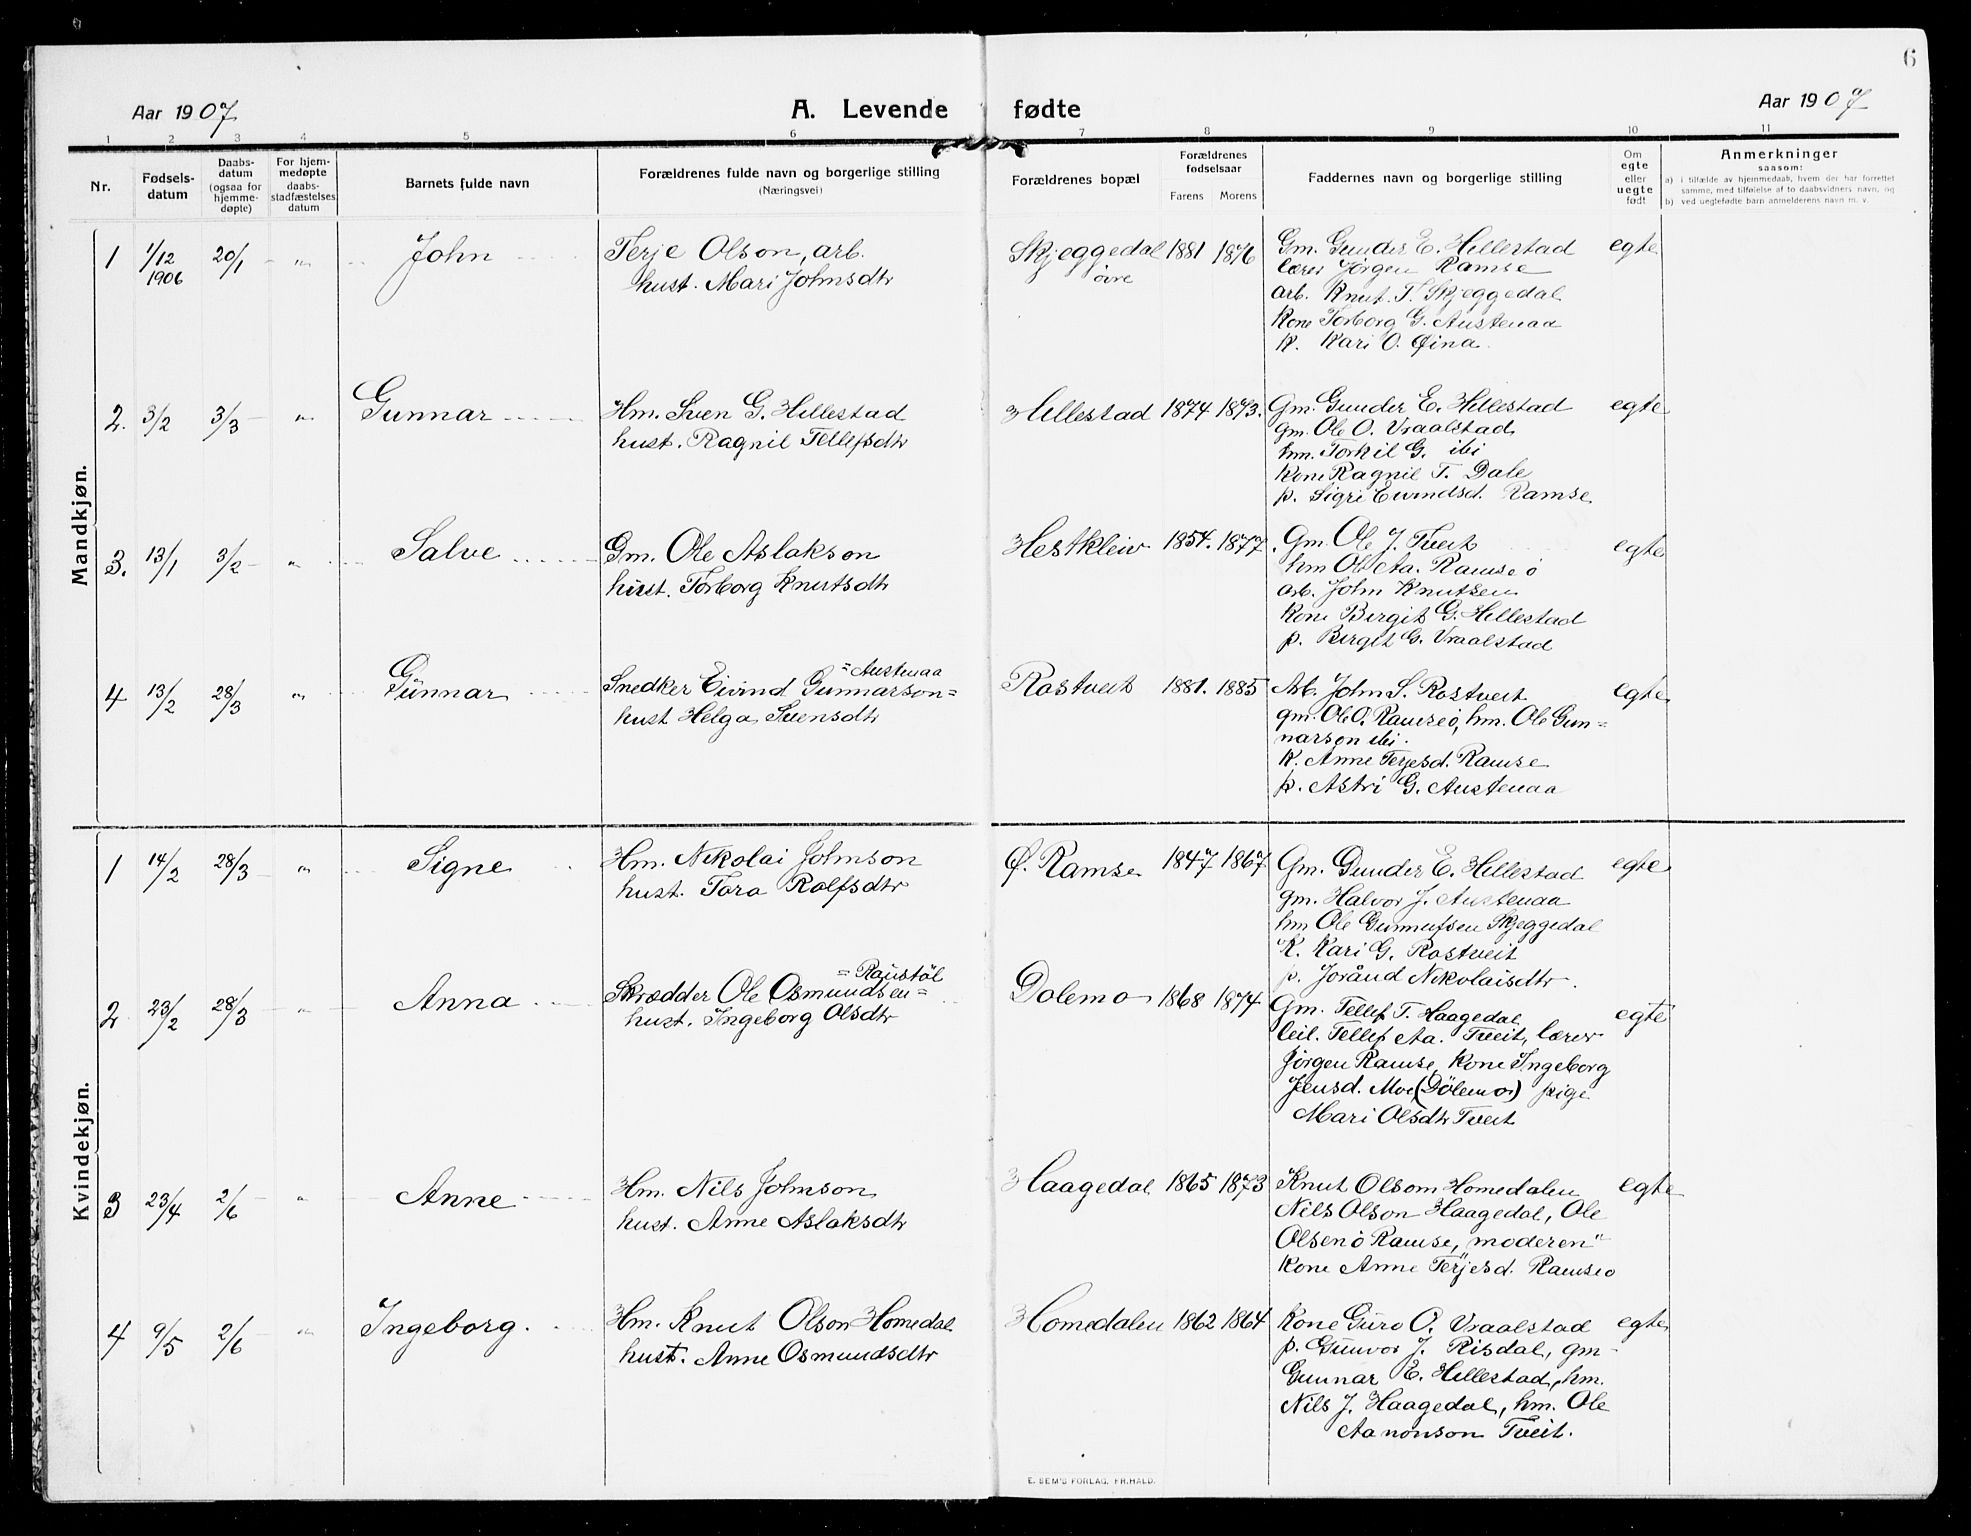 6
Aar 1907 A. Levende fødte Aar 1907
1 2 3 4 5 6 7 8 9 10 11
Nr.
Fødsels-
datum
Daabs-
datum
(ogsaa for
hjemme-
døpte)
For hjem-
medøpte
daabs-
stadfæstelses
datum
Barnets fulde navn
Forældrenes fulde navn og borgerlige stilling
(Næringsvei)
Forældrenes bopæl
Forældrenes
fødselsaar
Farens Morens
Faddernes navn og borgerlige stilling
Om
egte
eller
uegte
født
Anmerkninger
saasom:
a) i tilfælde av hjemmedaab, hvem der har forrettet
samme, med tilføielse af to daabsvidners navn, og
b) ved uegtefødte barn anmelderens navn m. v.
Mandkjøn.
1 1/12 20/1 - " John Terje Olson, arb. Skjeggedal 1881 1876 Gm. Gunder E. Hillestad egte
1906 hust. Mari Johnsdtr öire lærer Jörgen Ramse
arb. Knut T. Skjeggedal
kone Torborg G. Austenaa
K. Kari O. Øina.
2. 3/2 3/3 - " Gunnar Hm. Sven G. Hillestad Hillestad 1874 1873. Gm. Gunder E. Hillestad egte
hust. Ragnil Tellefsdtr gm. Ole O. Vraalstad
hm. Torkil G. ibi
Kone Ragnil T. Dale
p. Sigri Eivindsd. Ramse
3. 13/1 3/2 - " Salve Gm. Ole Aslakson Hestkleiv 1854. 1877. Gm. Ole J. Tveit egte
hust. Torborg Knutsdtr hm Ole Aa. Ramse ö
arb. John Knutsen
Kone Birgit G. Hillestad
p. Birgit G. Vraalstad
4 13/2 28/3 " Gunnar Snedker Eivind Gunnarson= =Austenaa Rostveit 1881. 1885 Arb. John S. Rostveit egte
hust Helga Svensdtr gm. Ole O. Ramse ö, hm. Ole Gun=
narson ibi.
K. Anne Terjesd. Ramse
p. Astri G. Austenaa
Kvindekjøn.
1 14/2 28/3 - " Signe Hm. Nikolai Johnson Ø. Ramse 1847 1867 Gm. Gunder E. Hillestad egte
hust. Tora Rolfsdtr gm. Halvor J. Austenaa
hm Ole Gunnufsen Skjeggedal
K. Kari G. Rostveit
p. Joränd Nikolaisdtr.
2 23/2 28/3 - " Anna Skrædder Ole Osmundsen= =Raustöl Dolemo 1868 1874 Gm. Tellef T. Haagedal egte
hust. Ingeborg Olsdtr leil. Tellef Aa. Tveit, lærer
Jörgen Ramse, Kone Ingeborg
Jensd. Moe (Dölemo) pige
Mari Olsdtr Tveit
3 23/4 2/6 - " Anne Hm. Nils Johnson Haagedal 1865 1873 Knut Olsom Homedalen egte
hust. Anne Aslaksdtr Nils Olson Haagedal, Ole
Olsen ö Ramse, moderen"
Kone Anne Terjesd. Ramse ö
4 9/5 2/6 - " Ingeborg. Hm. Knut Olson Homedal Homedalen 1862 1864 Kone Guro O. Vraalstad egte
hust. Anne Osmundsdtr p. Gunvor J. Risdal, gm-
Gunnar E. Hillestad, hm.
Nils J. Haagedal, hm. Ole
Aanonson Tveit.
E. SEM'S FORLAG, FR.HALD.